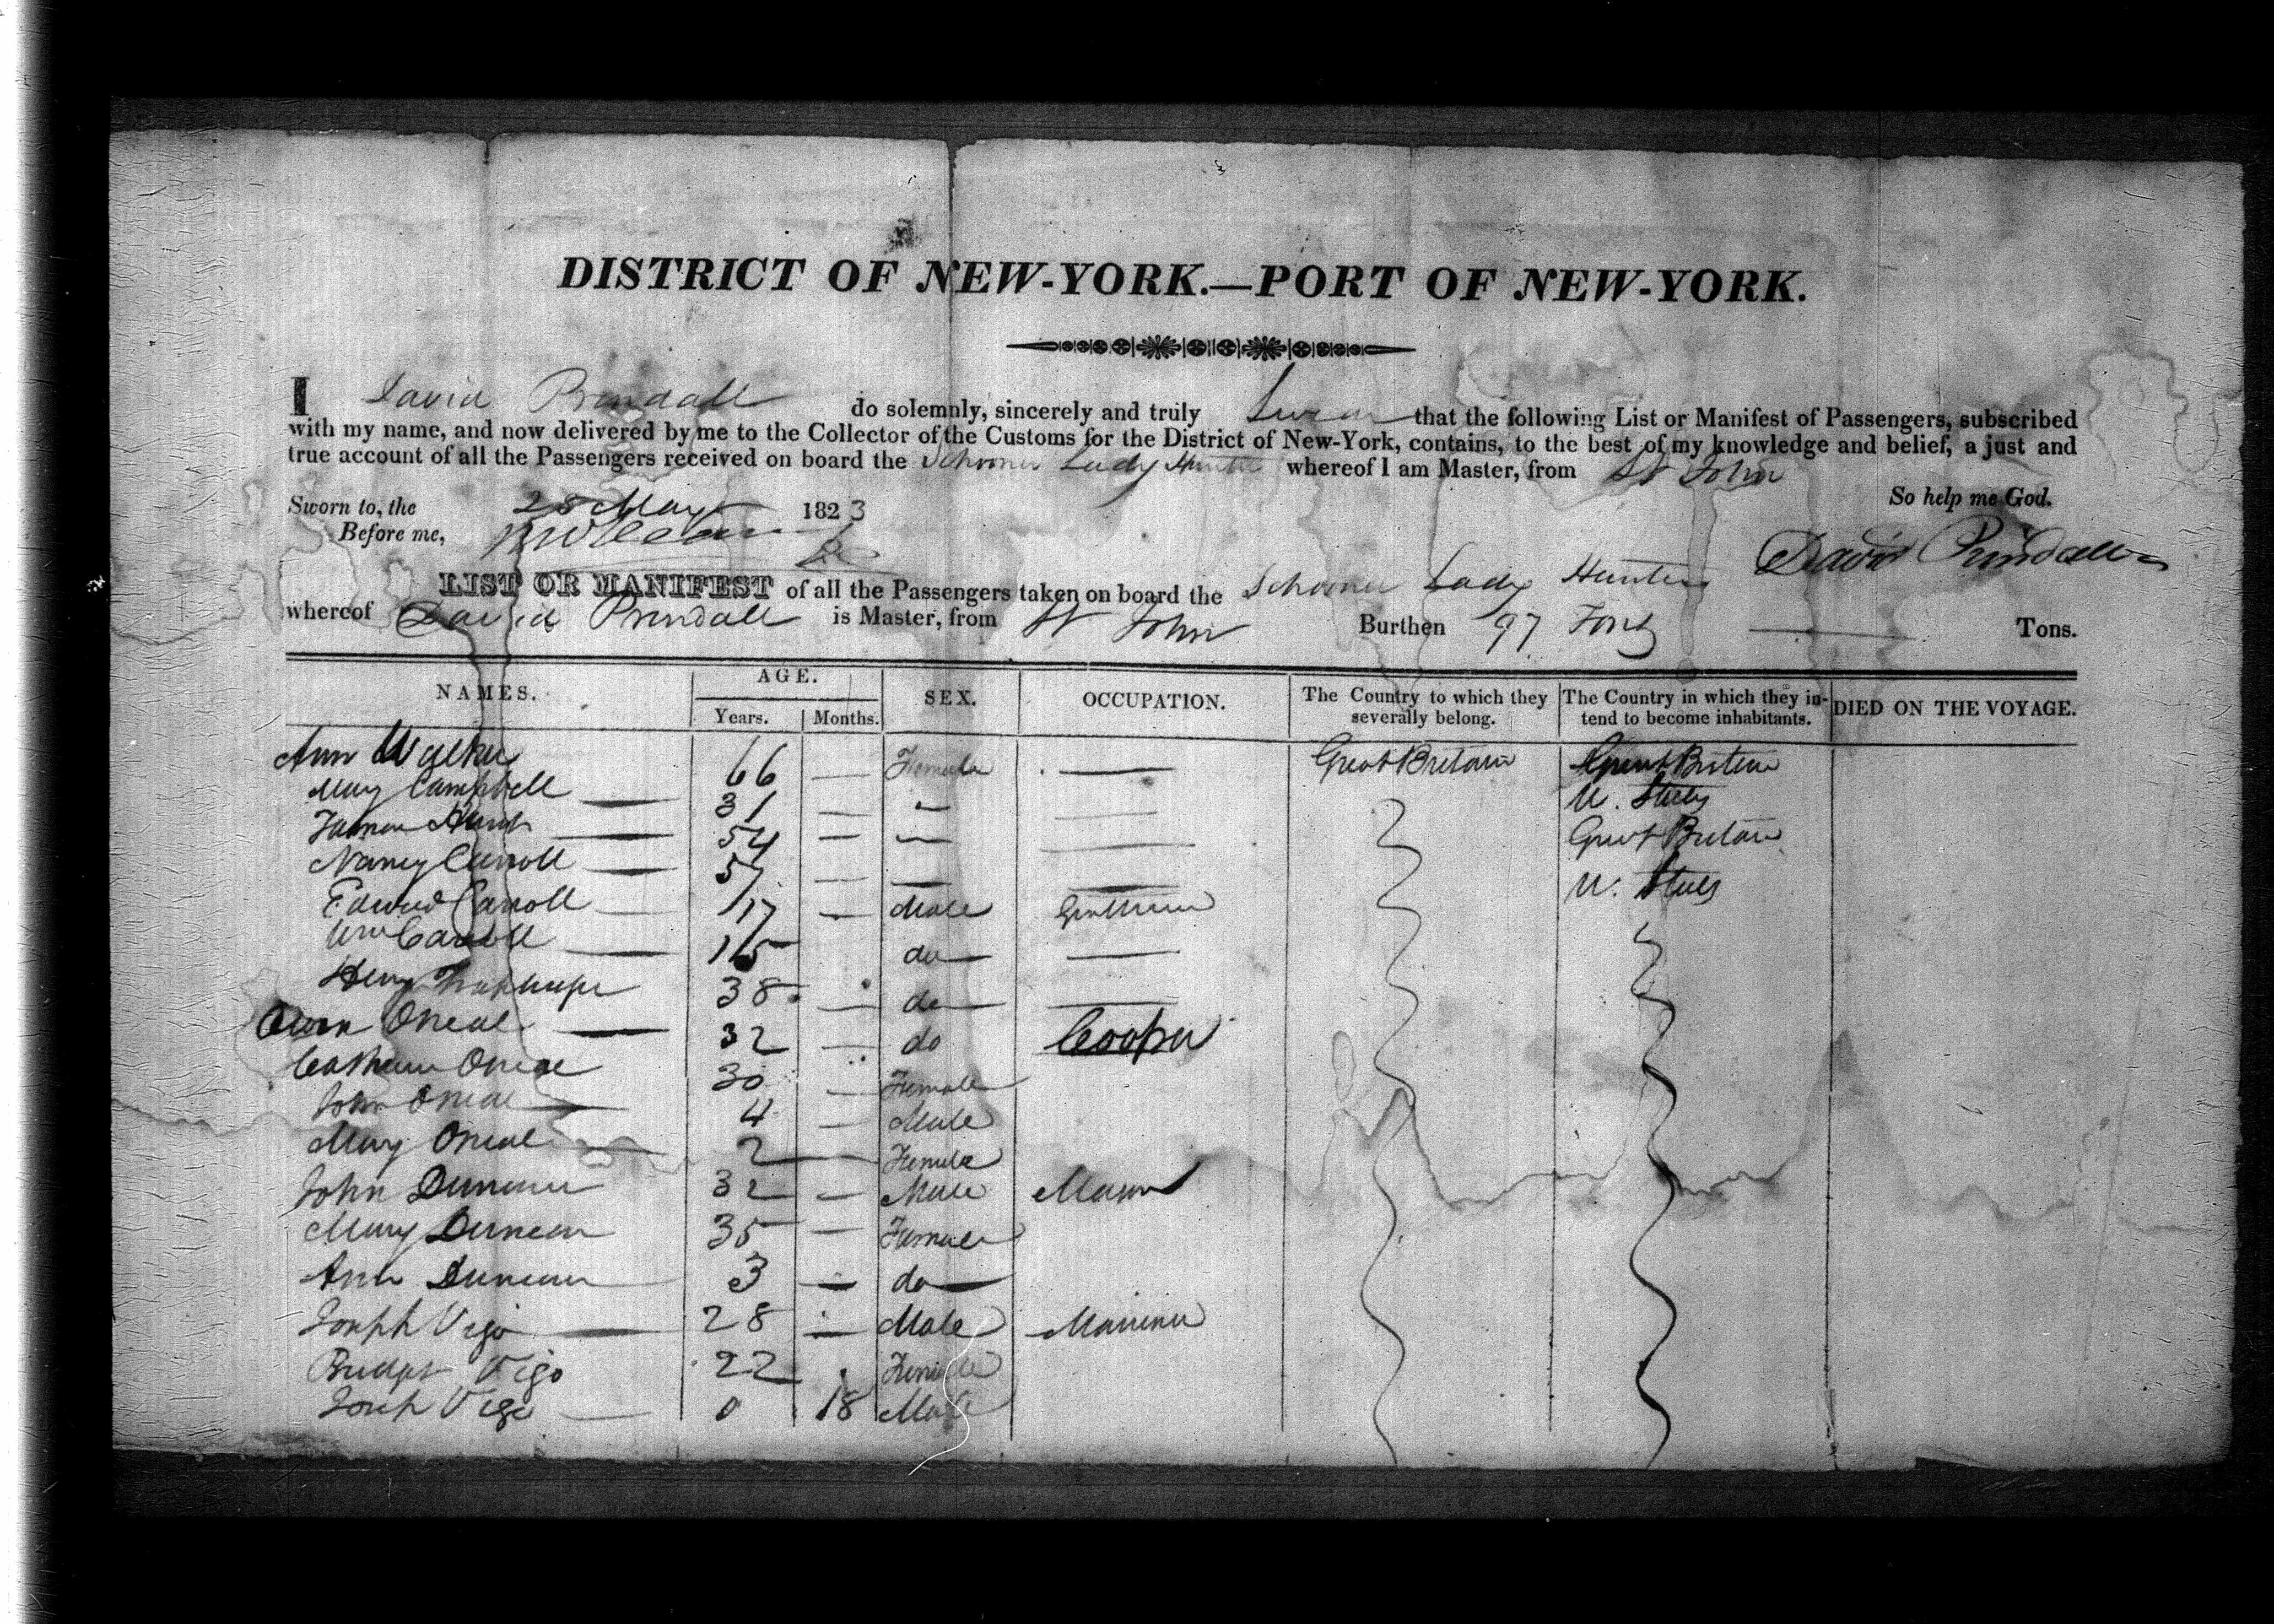 DISTRICT OF NEW-YORK.—PORT OF NEW-YORK.
I David Prindall do solemnly, sincerely and truly Swear that the following List or Manifest of Passengers, subscribed
with my name, and now delivered by me to the Collector of the Customs for the District of New-York, contains, to the best of my knowledge and belief, a just and
true account of all the Passengers received on board the Schooner Lady Hunter whereof I am Master, from St John
So help me God.
Sworn to, the 28 May 1823
Before me,
David Prindall
LIST OR MANIFEST of all the Passengers taken on board the Schooner Lady Hunter
whereof David Prindall is Master, from St John Burthen 97 Tons Tons.
NAMES. AGE. Years. Months. SEX. OCCUPATION. The Country to which they severally belong. The Country in which they intend to become inhabitants. DIED ON THE VOYAGE.
Ann Walker 66 — Female — Great Britain Great Britain
Mary Campbell — 31 — " — U. States
— 54 — " — Great Britain
Nancy Carroll — 57 — — — U. States
Edward Carroll — 17 — Male Gentleman
Wm Carroll — 15 do —
Henry 38 — do —
Owen Oneal — 32 — do Cooper
Catharine Oneal 30 — Female
John Oneal — 4 — Male
Mary Oneal — 2 — Female
John Duncan 32 — Male Mason
Mary Duncan 35 — Female
Ann Duncan 3 — do
Joseph Vigo — 28 — Male Mariner
Bridget Vigo 22 Female
Joseph Vigo — 0 18 Male